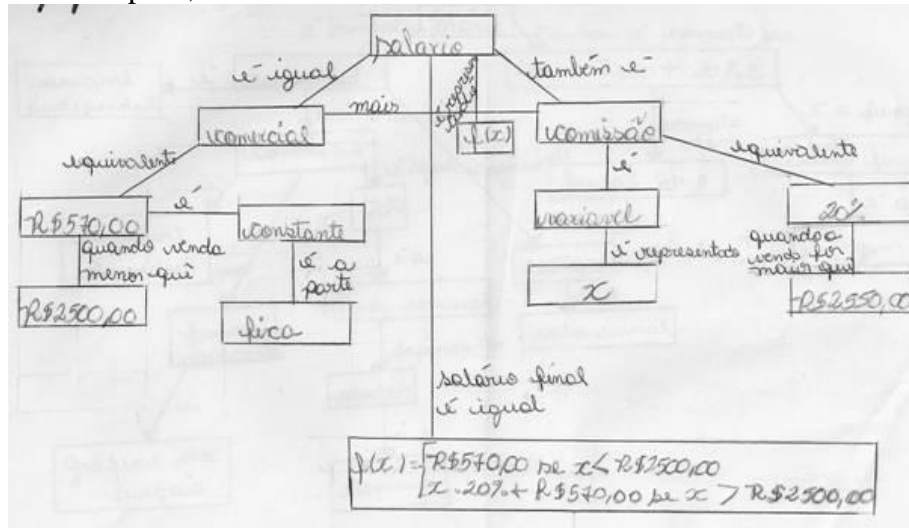 salario
é igual
também é
mais
é representado
comercial
f(x)
comissão
equivalente
é
equivalente
R$570,00
é
constante
variavel
20%
quando venda
menor quê
é a
parte
é representado
quando a
venda for
maior quê
R$2500,00
fixa
x
R$2550,00
salário final
é igual
f(x) = R$570,00 se x < R$2500,00
x . 20% + R$570,00 se x > R$2500,00